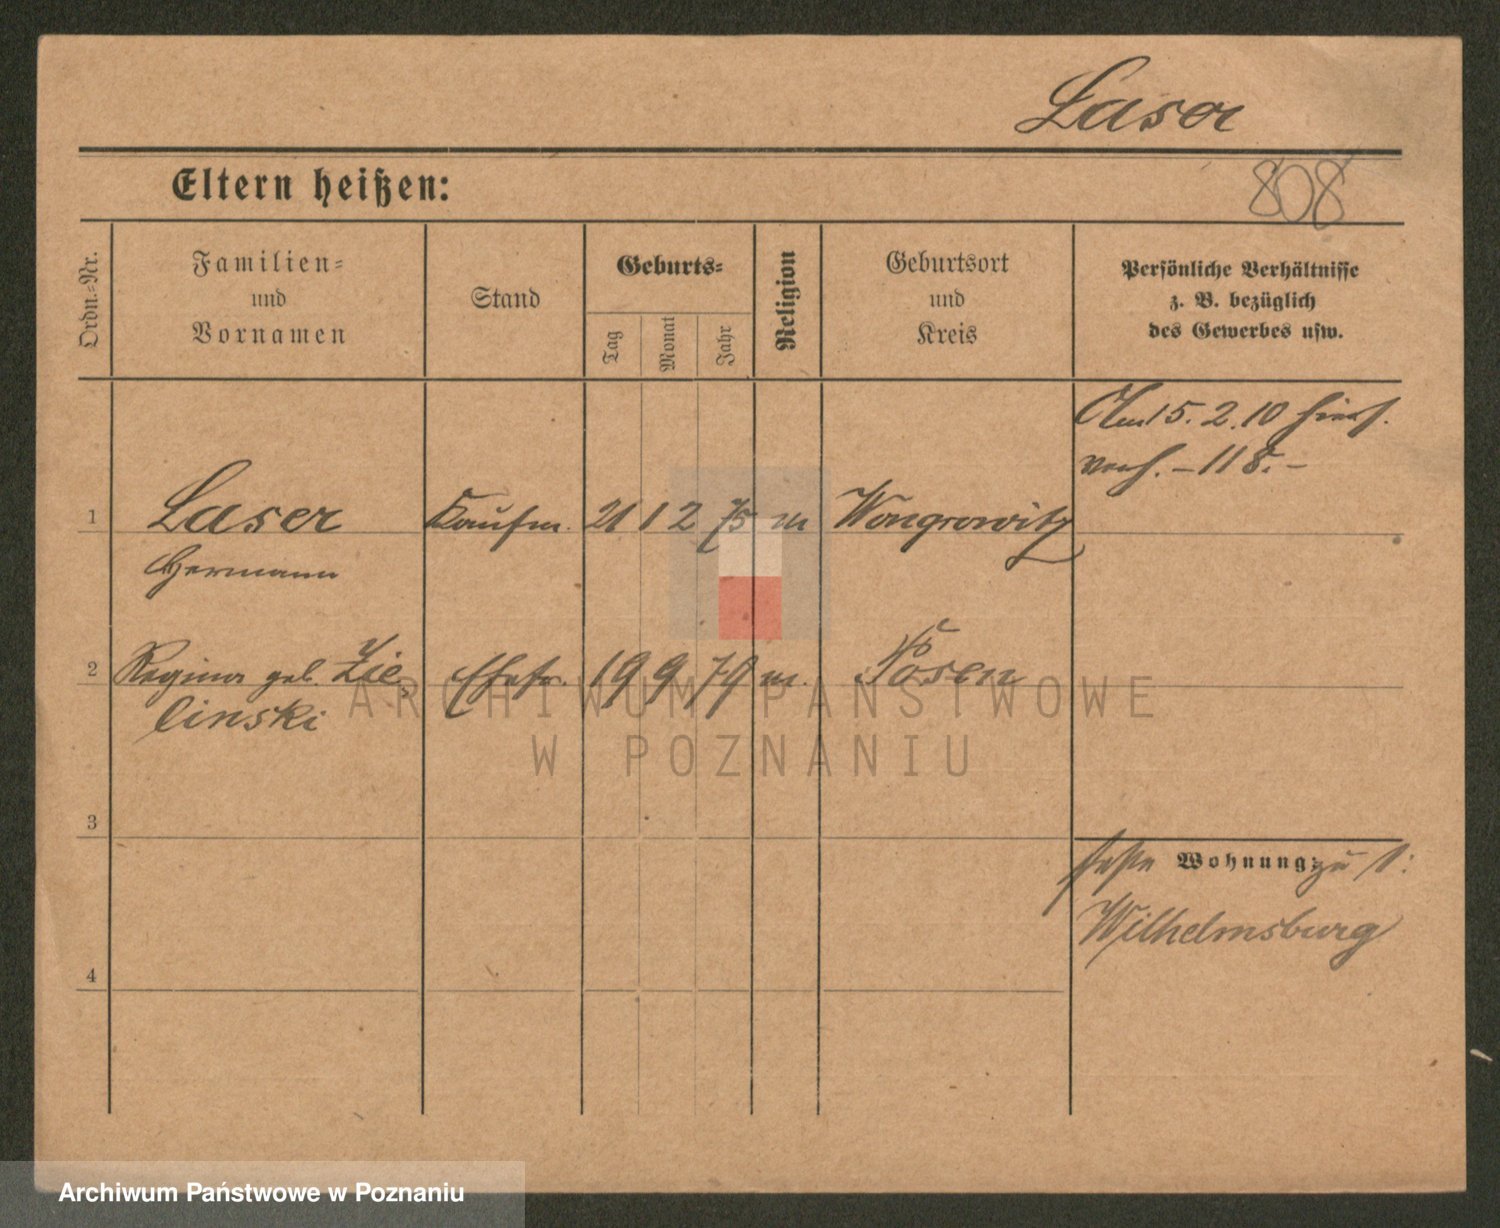 Laser
Eltern heißen:
808
Ordn.-Nr.
Familien-
und
Vornamen
Stand
Geburts-
Tag
Monat
Jahr
Religion
Geburtsort
und
Kreis
Persönliche Verhältnisse
z. B. bezüglich
des Gewerbes usw.
Am 15. 2. 10 hier
verh. – 118. –
1 Laser Kaufm. 21 12 75 m Wongrowitz
Hermann
2 Regina geb. Zie- Ehefr. 19 9 79 m. Posen
linski
ARCHIWUM PAŃSTWOWE
W POZNANIU
3
feste Wohnung: zu 1:
Wilhelmsburg
4
Archiwum Państwowe w Poznaniu